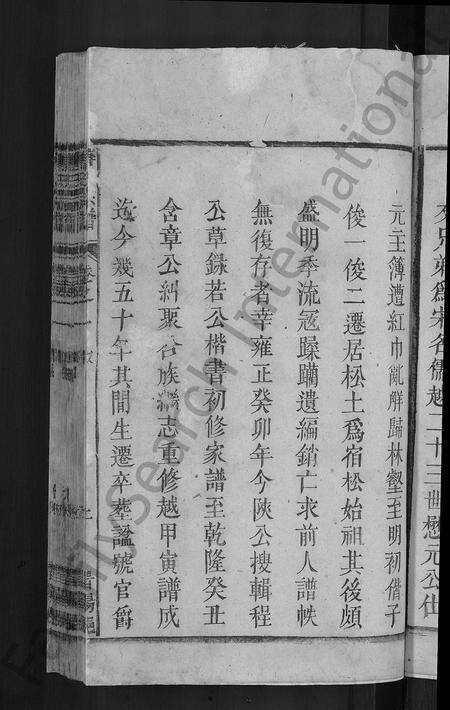 父兄弟為宋名儒越二十三世懋元公仕
元主簿遭紅巾亂解歸林壑至明初偕子
俊一俊二遷居松土為宿松始祖其後頗
盛明季流冦躁躪遺編銷亡求前人譜帙
無復存者幸雍正癸卯年今陝公搜輯程
公草録若公楷書初修家譜至乾隆癸丑
含章公糾聚各族繼志重修越甲寅譜成
迄今幾五十年其間生遷卒塟謚號官爵
FamilySearch International